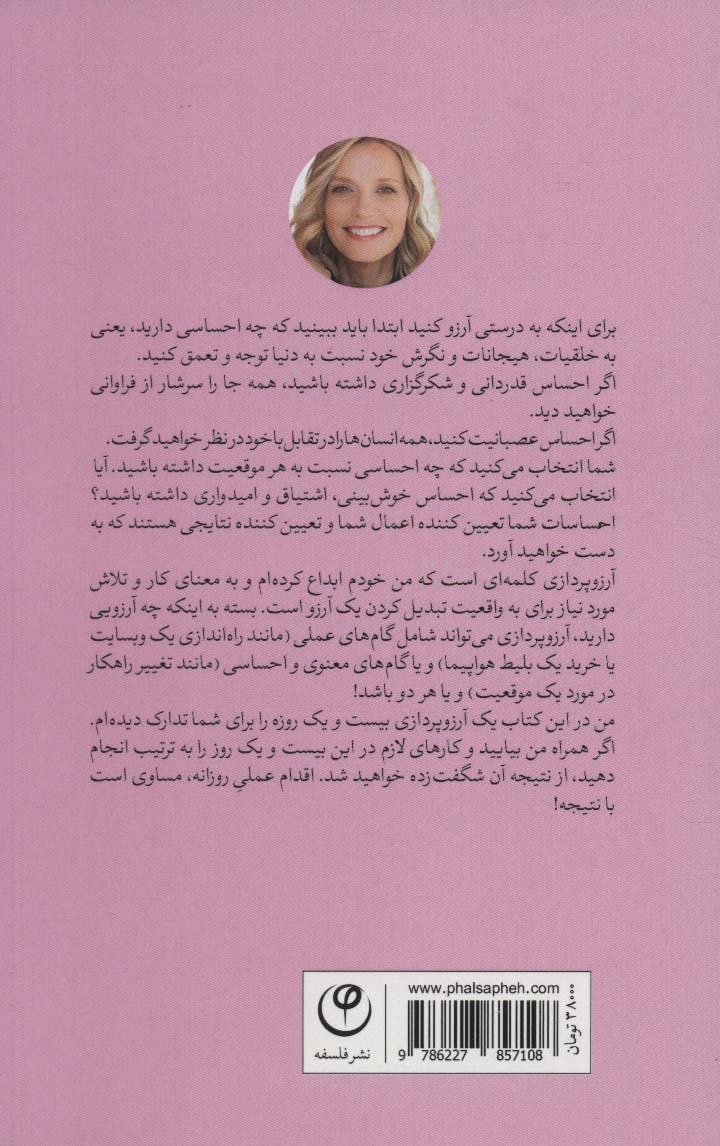 برای اینکه به درستی آرزو کنید ابتدا باید ببینید که چه احساسی دارید، یعنی
به خلقیات، هیجانات و نگرش خود نسبت به دنیا توجه و تعمق کنید.
اگر احساس قدردانی و شکرگزاری داشته باشید، همه جا را سرشار از فراوانی
خواهید دید.
اگر احساس عصبانیت کنید، همه انسان‌ها را در تقابل با خود در نظر خواهید گرفت.
شما انتخاب می‌کنید که چه احساسی نسبت به هر موقعیت داشته باشید. آیا
انتخاب می‌کنید که احساس خوش‌بینی، اشتیاق و امیدواری داشته باشید؟
احساسات شما تعیین کننده اعمال شما و تعیین کننده نتایجی هستند که به
دست خواهید آورد.
آرزوپردازی کلمه‌ای است که من خودم ابداع کرده‌ام و به معنای کار و تلاش
مورد نیاز برای به واقعیت تبدیل کردن یک آرزو است. بسته به اینکه چه آرزویی
دارید، آرزوپردازی می‌تواند شامل گام‌های عملی (مانند راه‌اندازی یک وبسایت
یا خرید یک بلیط هواپیما) و یا گام‌های معنوی و احساسی (مانند تغییر راهکار
در مورد یک موقعیت) و یا هر دو باشد!
من در این کتاب یک آرزوپردازی بیست و یک روزه را برای شما تدارک دیده‌ام.
اگر همراه من بیایید و کارهای لازم در این بیست و یک روز را به ترتیب انجام
دهید، از نتیجه آن شگفت‌زده خواهید شد. اقدام عملیِ روزانه، مساوی است
با نتیجه!
www.phalsapheh.com
۳۸۰۰۰ تومان
نشر فلسفه
9 786227 857108